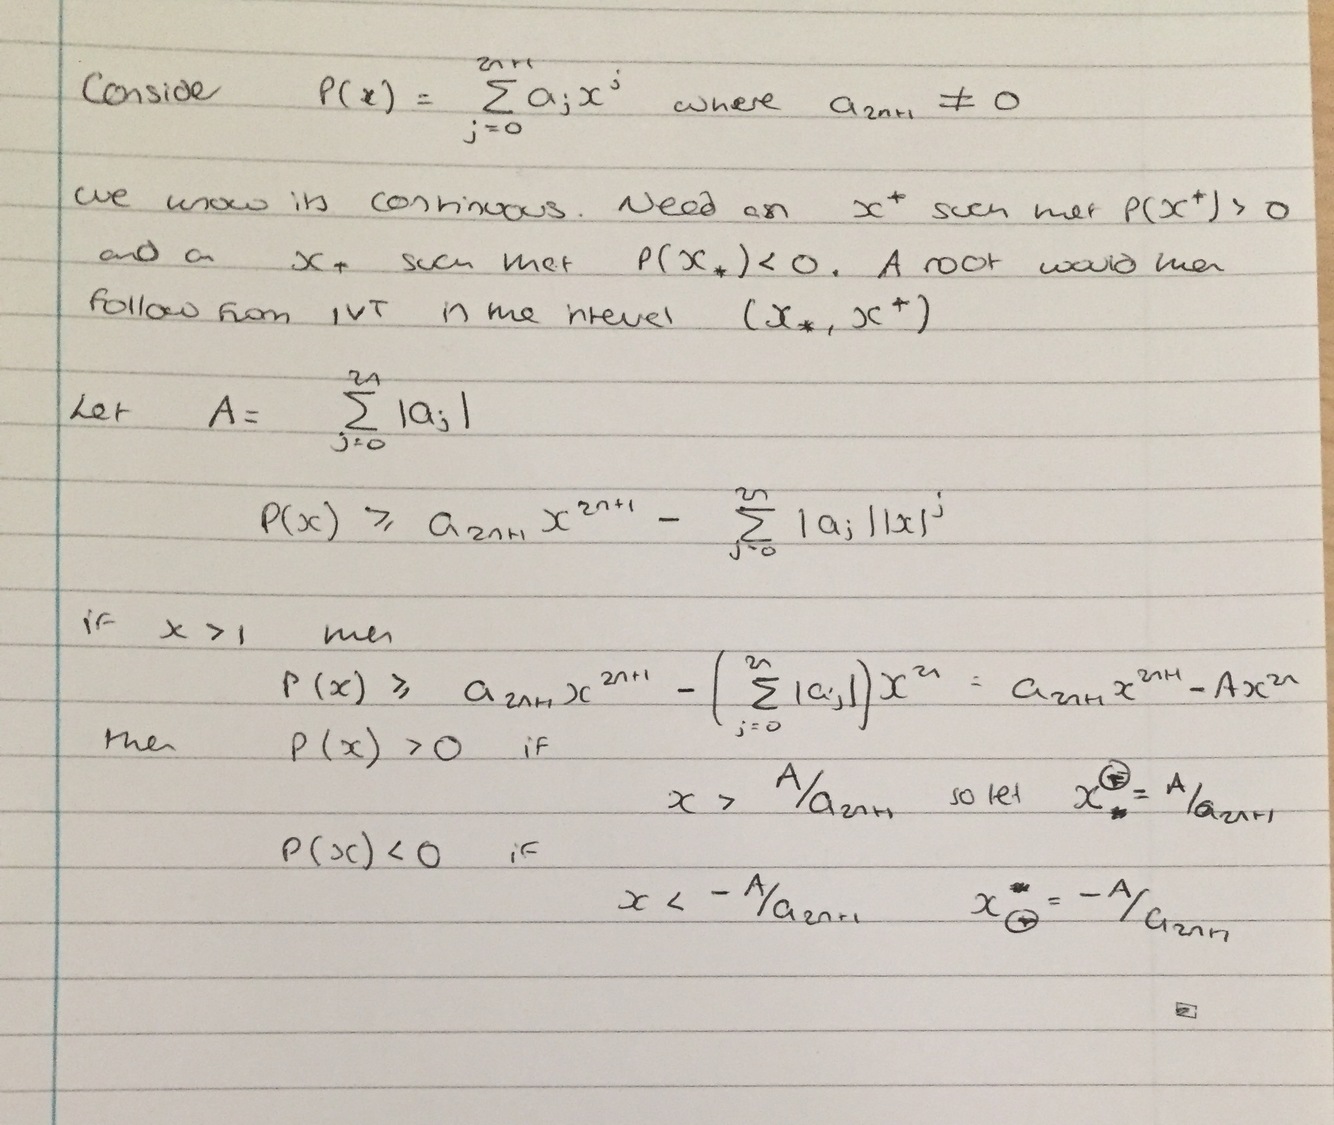 Conside P(x) = ∑_{j=0}^{2n+1} a_j x^j where a_{2n+1} ≠ 0
we know its continuous. Need an x^+ such that P(x^+) > 0
and a x_* such that P(x_*) < 0. A root would then
follow from IVT in the interval (x_*, x^+)
Let A = ∑_{j=0}^{2n} |a_j|
P(x) ≥ a_{2n+1} x^{2n+1} - ∑_{j=0}^{2n} |a_j||x|^j
if x > 1 then
P(x) ≥ a_{2n+1} x^{2n+1} - (∑_{j=0}^{2n} |a_j|) x^{2n} = a_{2n+1} x^{2n+1} - Ax^{2n}
then P(x) > 0 if
x > A/a_{2n+1} so let x^+ = A/a_{2n+1}
P(x) < 0 if
x < -A/a_{2n+1} x_* = -A/a_{2n+1}